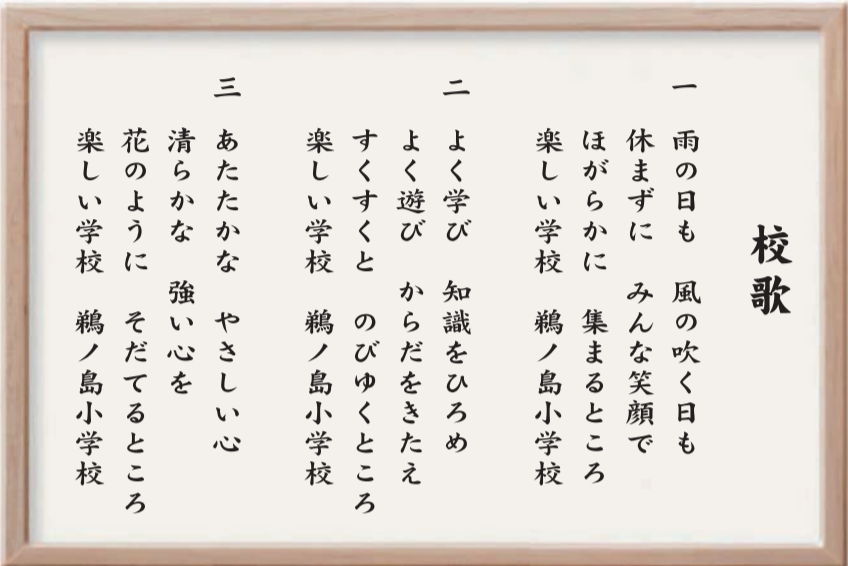 校歌
一 雨の日も 風の吹く日も
休まずに みんな笑顔で
ほがらかに 集まるところ
楽しい学校 鵜ノ島小学校
二 よく学び 知識をひろめ
よく遊び からだをきたえ
すくすくと のびゆくところ
楽しい学校 鵜ノ島小学校
三 あたたかな やさしい心
清らかな 強い心を
花のように そだてるところ
楽しい学校 鵜ノ島小学校